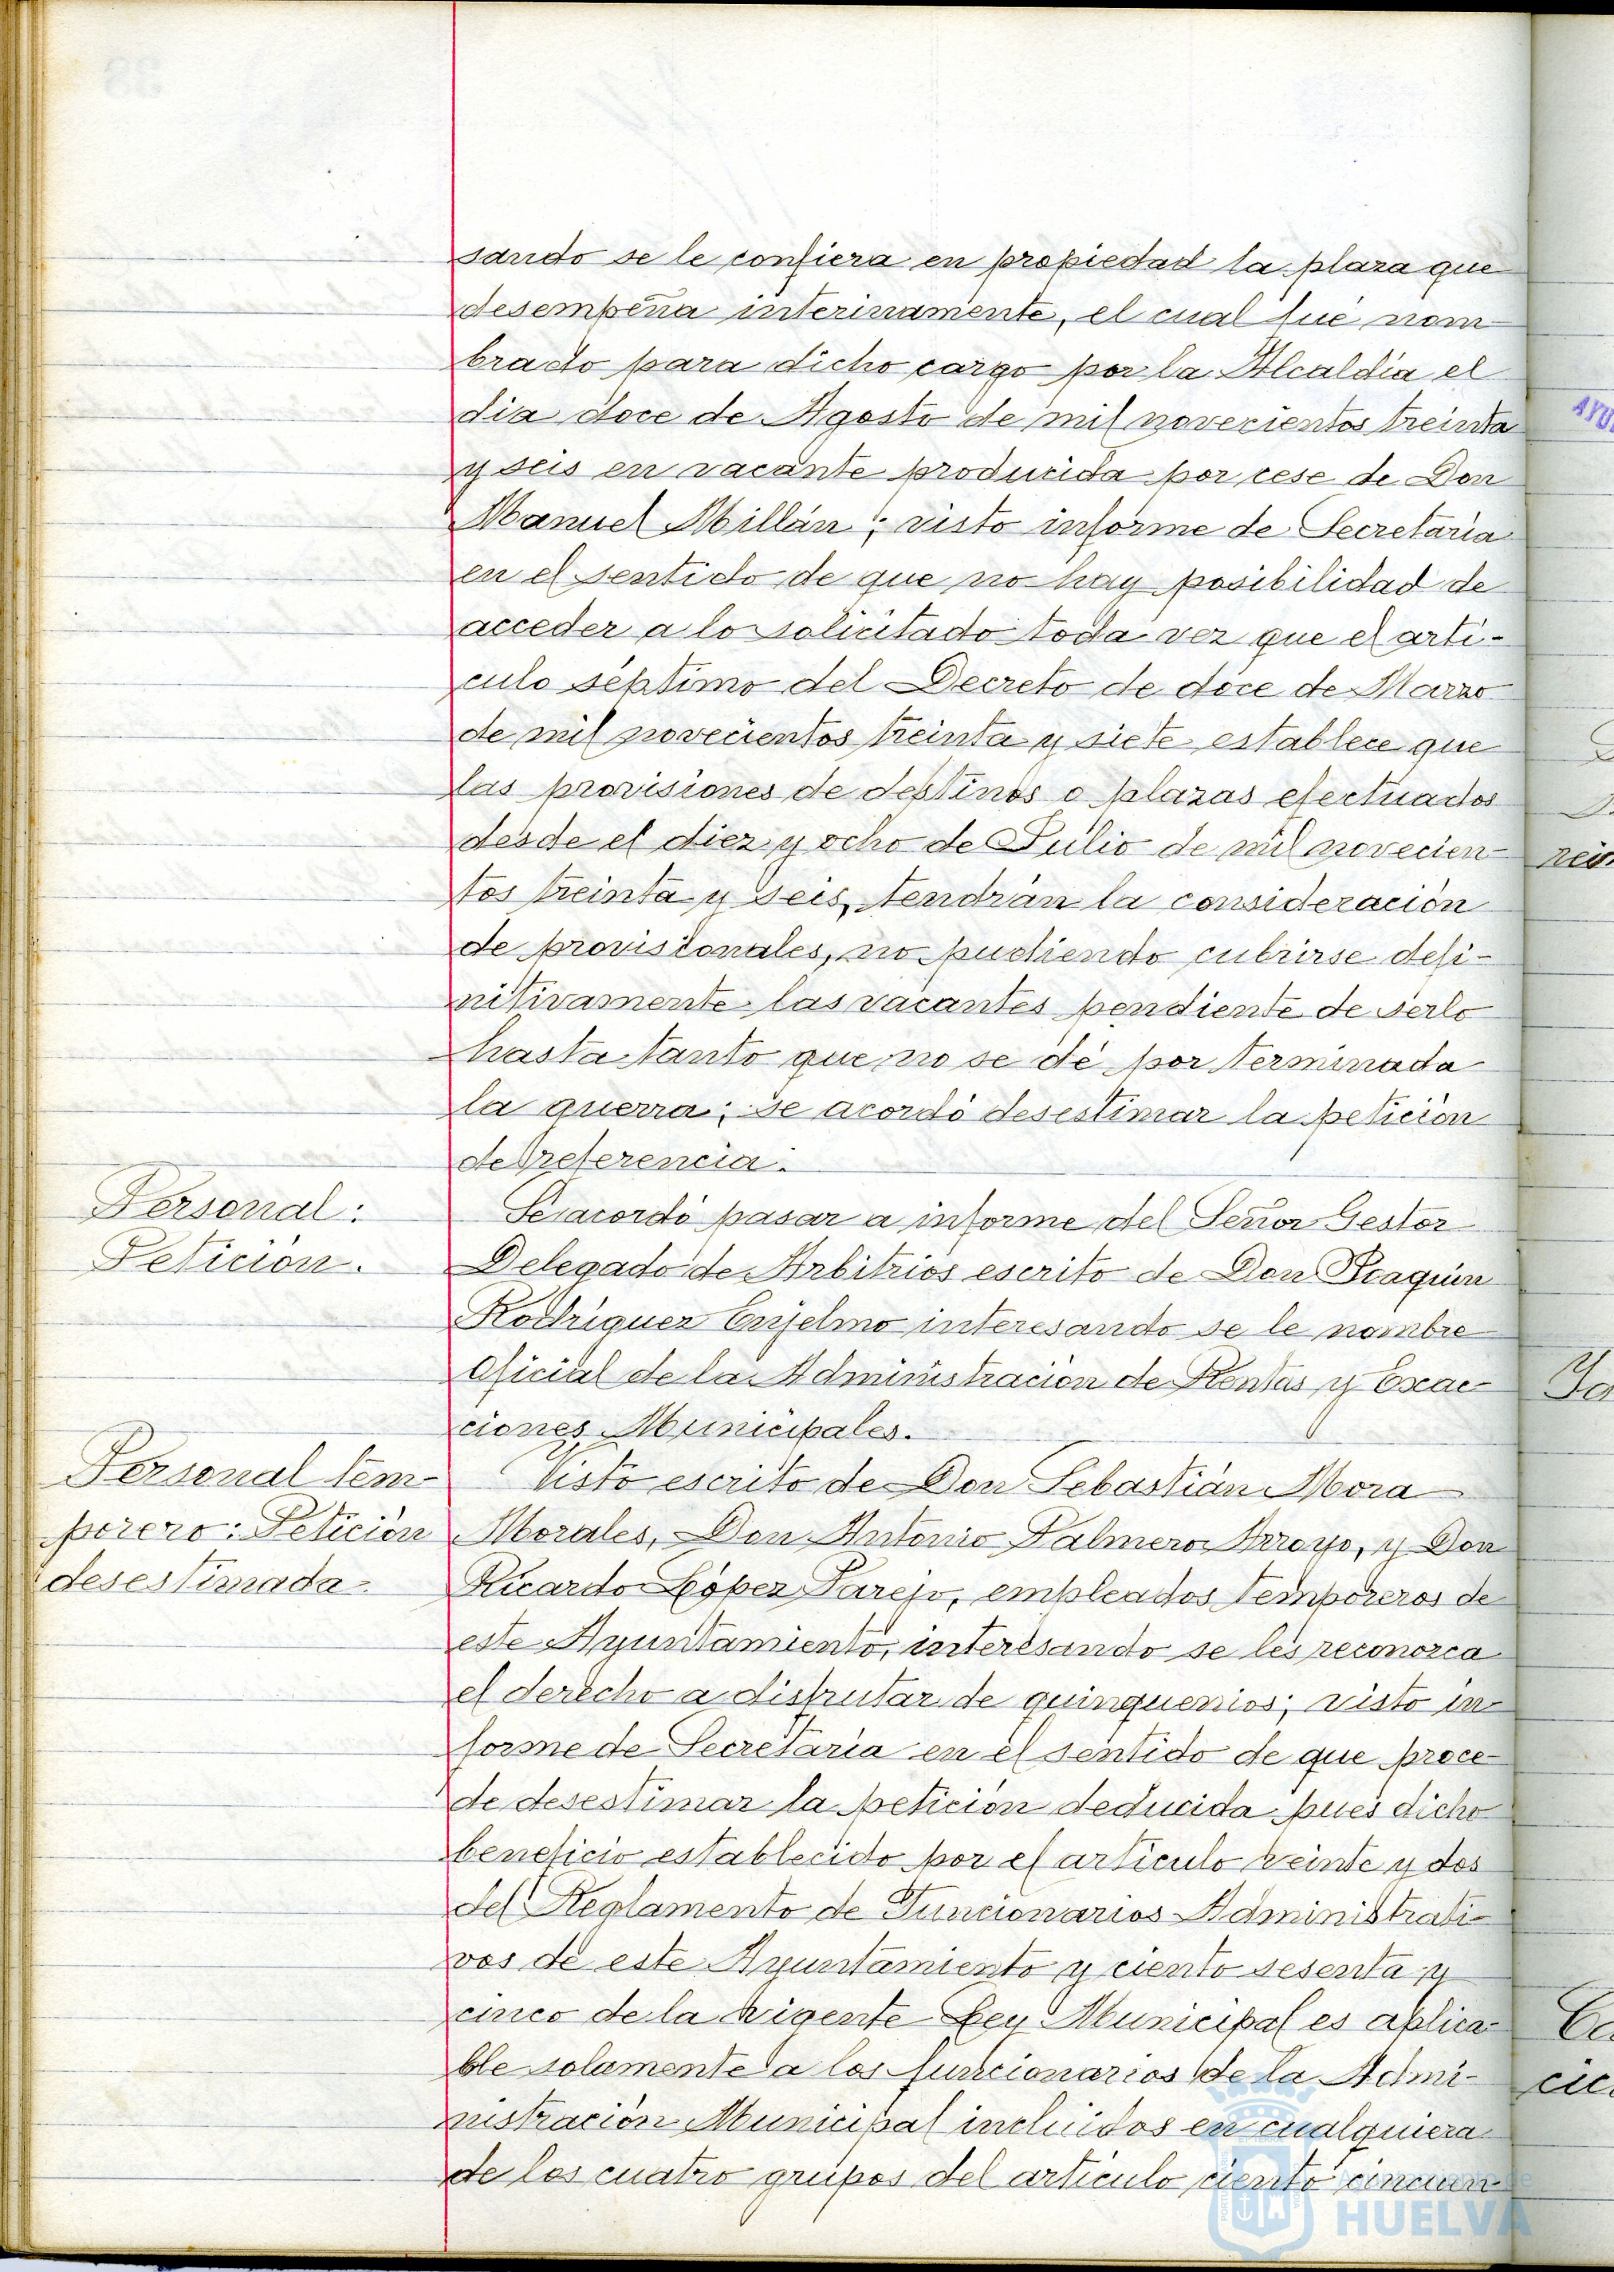 sando se le confiera en propiedad la plaza que
desempeña interinamente, el cual fué nom
brado para dicho cargo por la Alcaldía el
día doce de Agosto de mil novecientos treinta
y seis en vacante producida por cese de Don
Manuel Millán; visto informe de Secretaría
en el sentido de que no hay posibilidad de
acceder a lo solicitado toda vez que el artí-
culo séptimo del Decreto de doce de Marzo
de mil novecientos treinta y siete establece que
las provisiones de destinos o plazas efectuados
desde el diez y ocho de Julio de mil novecien
tos treinta y seis, tendrán la consideración
de provisionales, no pudiendo cubrirse defi-
nitivamente las vacantes pendiente de serlo
hasta tanto que no se dé por terminada
la guerra; se acordó desestimar la petición
de referencia.
Personal:
Petición.
Se acordó pasar a informe del Señor Gestor
Delegado de Arbitrios escrito de Don Joaquín
Rodríguez Enjelmo interesando se le nombre
Oficial de la Administración de Rentas y Exac-
ciones Municipales.
Personal tem-
porero: Petición
desestimada.
Visto escrito de Don Sebastián Mora
Morales, Don Antonio Palmero Arroyo, y Don
Ricardo López Parejo, empleados temporeros de
este Ayuntamiento, interesando se les reconozca
el derecho a disfrutar de quinquenios; visto in-
forme de Secretaría en el sentido de que proce-
de desestimar la petición deducida pues dicho
beneficio establecido por el artículo veinte y dos
del Reglamento de Funcionarios Administrati-
vos de este Ayuntamiento y ciento sesenta y
cinco de la vigente Ley Municipal es aplica-
ble solamente a los funcionarios de la Admi-
nistración Municipal incluídos en cualquiera
de los cuatro grupos del artículo ciento cincuen-
HUELVA